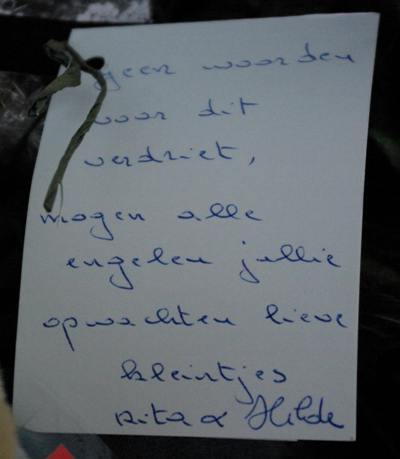 geen woorden
voor dit
verdriet,
mogen alle
engelen jullie
opwachten lieve
kleintjes
Rita & Hilde